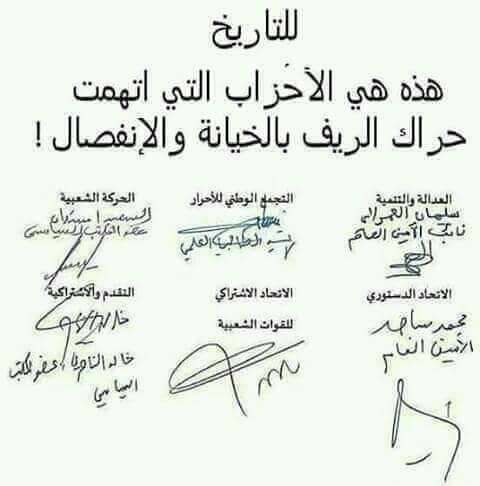 للتاريخ
هذه هي الأحزاب التي اتهمت
حراك الريف بالخيانة والإنفصال !
العدالة والتنمية
سليمان العمراني
نائب الأمين العام
التجمع الوطني للأحرار
العلمي
الحركة الشعبية
السعيد أمسكان
عضو المكتب السياسي
الاتحاد الدستوري
محمد ساجد
الأمين العام
الاتحاد الاشتراكي
للقوات الشعبية
التقدم والاشتراكية
خالد الناصري، عضو المكتب
السياسي